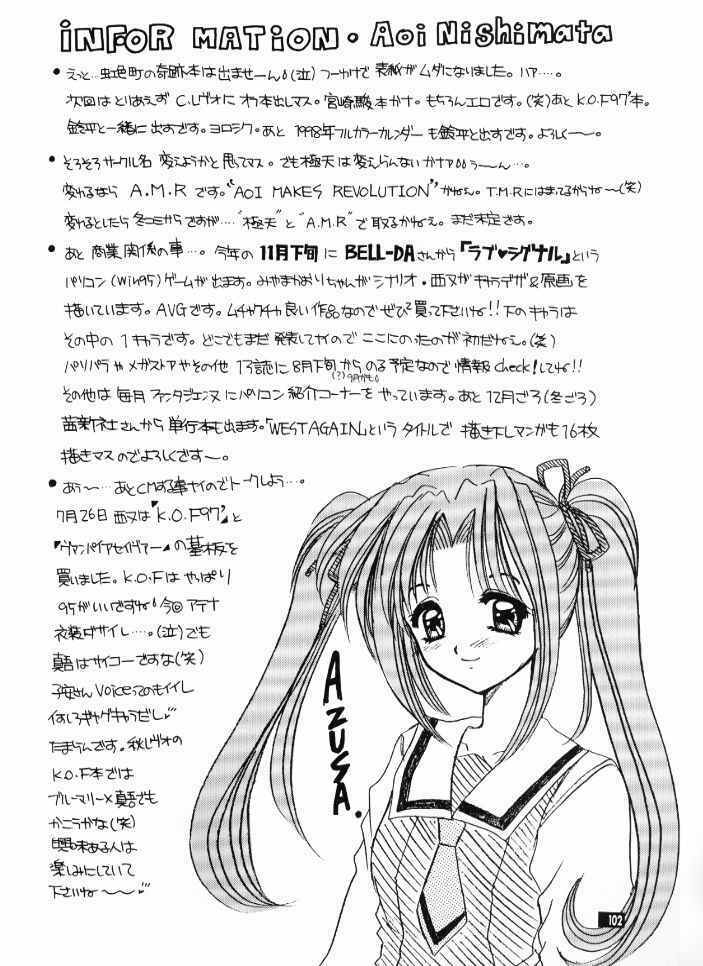 INFORMATION・Aoi Nishimata
●えっと…虹色町の奇跡本は出ませーん!(泣)つーわけで表紙がムダになりました。ハァ…。
次回はとりあえずC.レヴォにオフ本出しマス。宮崎駿本カナ。もちろんエロです。(笑)あとK.O.F97'本。
鈴平と一緒に出すです。ヨロシク。あと1998年フルカラーカレンダーも鈴平と出すです。よろしく〜。
●そろそろサークル名変えようかと思ってマス。でも極天は変えらんないかナァ。うーん…。
変わるならA.M.Rです。"AOI MAKES REVOLUTION"かねぇ。T.M.Rにはまってるからね〜(笑)
変わるとしたら冬コミからですが…"極天"と"A.M.R"で取るかねぇ。まだ未定です。
●あと商業関係の事…。今年の11月下旬にBELL-DAさんから「ラブ♥シグナル」という
パソコン(Win95)ゲームが出ます。みやまかおりちゃんがシナリオ・西又がキャラデザ&原画を
描いています。AVGです。ムチャクチャ良い作品なのでぜひ買って下さいね!!下のキャラは
その中の1キャラです。どこでもまだ発表してナイのでここにのったのが初だねぇ。(笑)
パソパラやメガストアやその他13誌に8月下旬からのる予定なので情報check!してね!!
(?)9月かも
その他は毎月ファンタジェンヌにパソコン紹介コーナーをやっています。あと12月ごろ(冬ごろ)
茜新社さんから単行本も出ます。「WEST AGAIN」というタイトルで描き下しマンガも16枚
描きマスのでよろしくです〜。
●あぅ〜…あとCMする事ナイのでトークしよう…。
7月26日西又は「K.O.F97'」と
「ヴァンパイアセイヴァー」の基板を
買いました。K.O.Fはやっぱり
95がいいですね!今回アテナ
衣装ダサイし…。(泣)でも
真吾はサイコーですな(笑)
子安さんVoiceってのもイイし
何しろギャグキャラだし
たまらんです。秋レヴォの
K.O.F本では
ブルーマリー×真吾でも
かこうかな(笑)
興味ある人は
楽しみにしていて
下さいね〜〜
AZUSA.
102